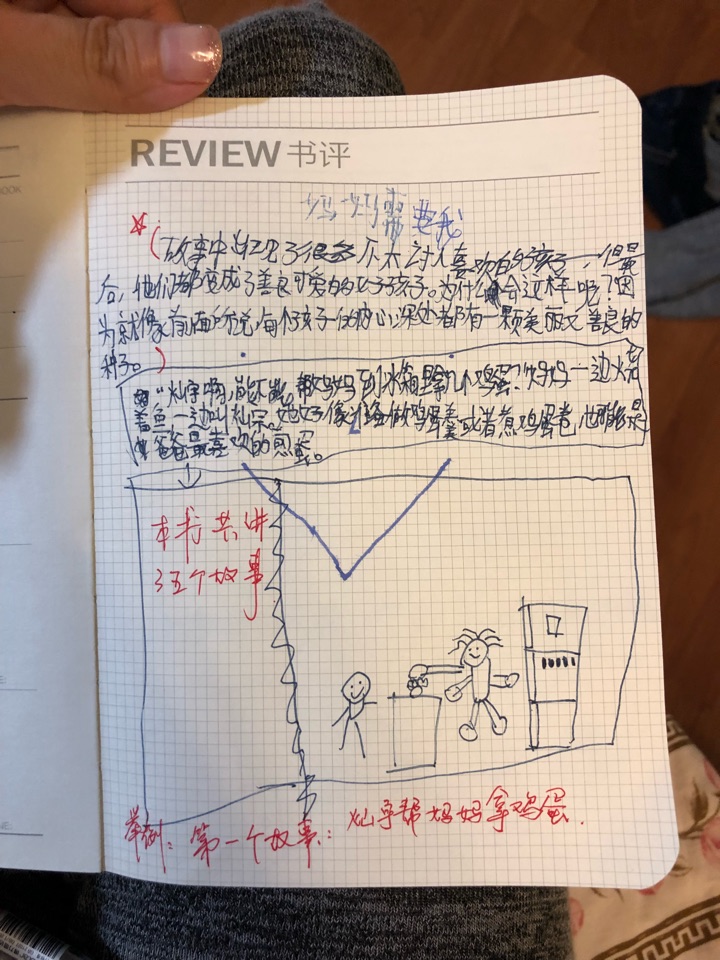 REVIEW 书评
妈妈需要我
*(故事中出现了很多不太讨人喜欢的孩子,但最
后,他们都变成了善良可爱的好孩子。为什么会这样呢?因
为就像前面所说,每个孩子的内心深处都有一颗美丽又善良的
种子。)
“灿宇啊,能不能帮妈妈到冰箱里拿几个鸡蛋?”妈妈一边烧
着鱼一边叫灿宗。她好像准备做鸡蛋羹或者煮鸡蛋卷,也可能是
爸爸最喜欢的煎蛋。
本书共讲
了五个故事
举例:第一个故事:灿宇帮妈妈拿鸡蛋.